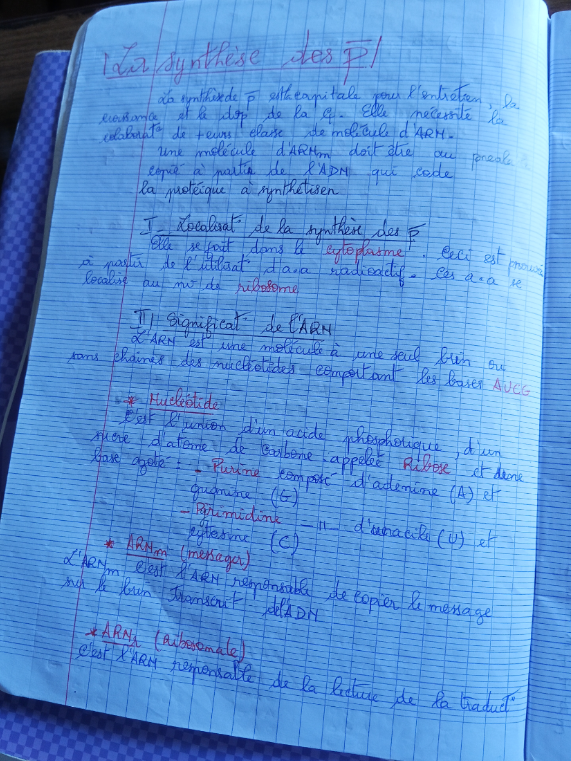 La synthèse des p̄
La synthèse de p̄ est capitale pour l'entretien, la
croissance et le dvp de la ¢. Elle nécessite la
colaborat° de +eurs classe de molécule d'ARN.
Une molécule d'ARNm doit être au préala
copié à partir de l'ADN qui code
la protéique à synthétiser
I_ Localisat° de la synthèse des p̄
Elle se fait dans le cytoplasme. Ceci est prouvé
à partir de l'utilisat° d'a.a radioactif. Ces a.a se
localise au nv de ribosome
II) Significat° de l'ARN
L'ARN est une molécule à une seul brin ou
sans chaînes des nucléotides comportant les bases AUCG
* Nucléotide
C'est l'union d'un acide phosphorique, d'un
sucre d'atome de carbone appelée Ribose et d'une
base azoté : - Purine compose d'adenine (A) et
guanine (G)
- Pyrimidine _ 11 _ d'uracile (U) et
cytosine (C)
* ARNm (messager)
L'ARNm c'est l'ARN responsable de copier le message
sur le brin Transcrit de l'ADN
* ARNr (Ribosomate)
C'est l'ARN responsable de la lecture de la traduct°